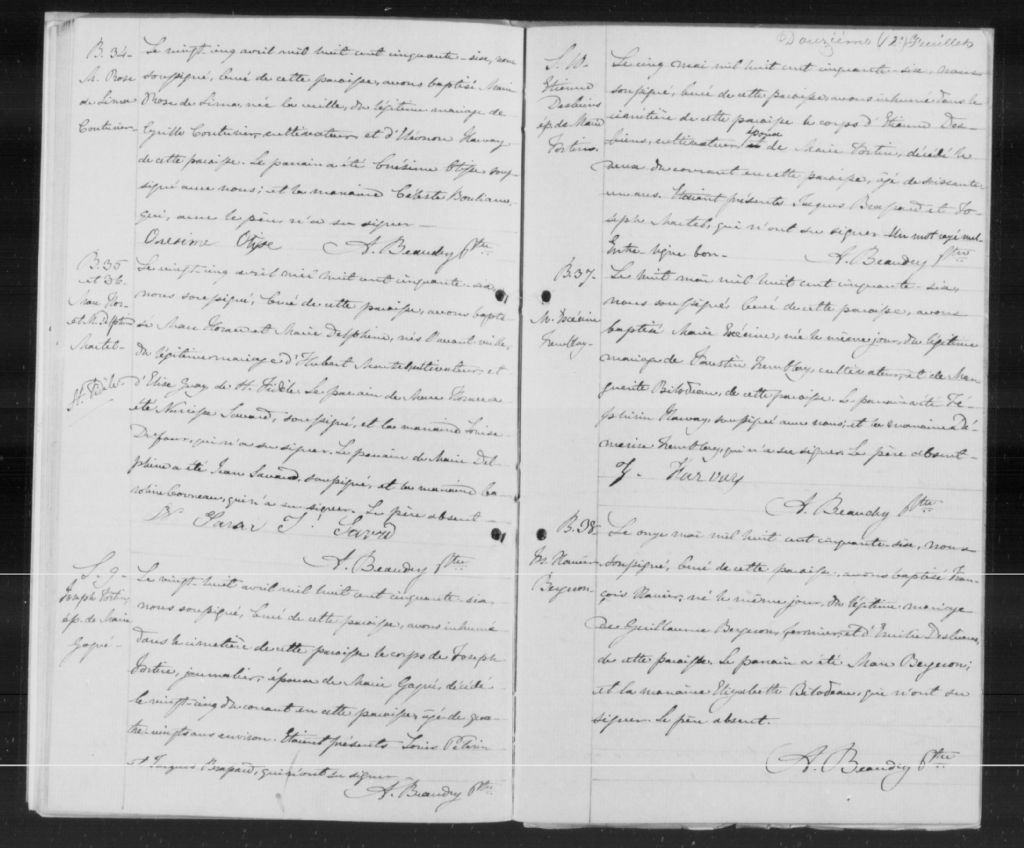 B. 34-
M. Rose
de Lima
Couturier
Le vingt-cinq avril mil huit cent cinquante-six, nous
soussigné, Curé de cette paroisse, avons baptisé Marie
Rose de Lima, née la veille, du légitime mariage de
Cyrille Couturier, cultivateur, et d'Héonon Harvay
de cette paroisse. Le parrain a été Onésime Otisse, sous-
signé avec nous; et la marraine Céleste Boulianne
qui, avec le père n'a su signer-
Onesime Otisse A. Beaudry Ptre
B. 35
et 36.
Marc Hor-
et M. Delphine
Martel-
H. Fidèle
Le vingt-cinq avril mil huit cent cinquante-six,
nous soussigné, Curé de cette paroisse, avons bapti-
sé Marc et Marie Delphine, nés l'avant-veille,
du légitime mariage d'Hubert Martel, cultivateur, et
d'Elise Guay de H. Fidèle. Le parrain de Marc a
été Narcisse Savard, soussigné, et la marraine Louise
Dufour, qui n'a su signer. Le parrain de Marie Del-
phine a été Jean Savard, soussigné, et la marraine Ca-
roline Corneau, qui n'a su signer. Le père absent-
N Savar J. Savard
A. Beaudry Ptre
S. 9-
Joseph Fortin,
ép. de Marie
Gagné-
Le vingt-huit avril mil huit cent cinquante-six,
nous soussigné, Curé de cette paroisse, avons inhumé
dans le cimetière de cette paroisse le corps de Joseph
Fortin, journalier, époux de Marie Gagné, décédé
le vingt-cinq du courant en cette paroisse, âgé de qua-
tre-vingts ans environ. Etaient présents Louis
et Jacques Brassard, qui n'ont su signer-
A. Beaudry Ptre
Douzième (12e) Feuillet
S. 10-
Etienne
Desbiens
ép. de Marie
Fortin.
Le cinq mai mil huit cent cinquante-six, nous
soussigné, Curé de cette paroisse, avons inhumé dans le
cimetière de cette paroisse le corps d'Etienne Des-
époux
biens, cultivateur, de Marie Fortin, décédé le
deux du courant en cette paroisse, âgé de soixante et
un ans. Etaient présents Jacques Brassard et Jo-
seph Martel, qui n'ont su signer. Un mot rayé nul-
Entre-ligne bon- A. Beaudry Ptre
B. 37-
Tremblay-
Le huit mai mil huit cent cinquante-six,
nous soussigné, Curé de cette paroisse, avons
baptisé Marie, née le même jour, du légitime
mariage de Faustin Tremblay, cultivateur, et de Mar-
guerite Bilodeau, de cette paroisse. Le parrain a été Zé-
phirin Harvay, soussigné avec nous; et la marraine Dé-
merise Tremblay, qui n'a su signer. Le père absent-
Z. Harvay
A. Beaudry Ptre
B. 38-
Frs. Xavier
Bergeron-
Le onze mai mil huit cent cinquante-six, nous
soussigné, Curé de cette paroisse, avons baptisé Fran-
çois Xavier, né le même jour, du légitime mariage
de Guillaume Bergeron, fermier, et d'Emilie
de cette paroisse. Le parrain a été Marc Bergeron;
et la marraine Elizabeth Bilodeau, qui n'ont su
signer. Le père absent.
A. Beaudry Ptre